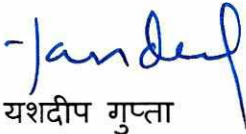 यशदीप गुप्ता